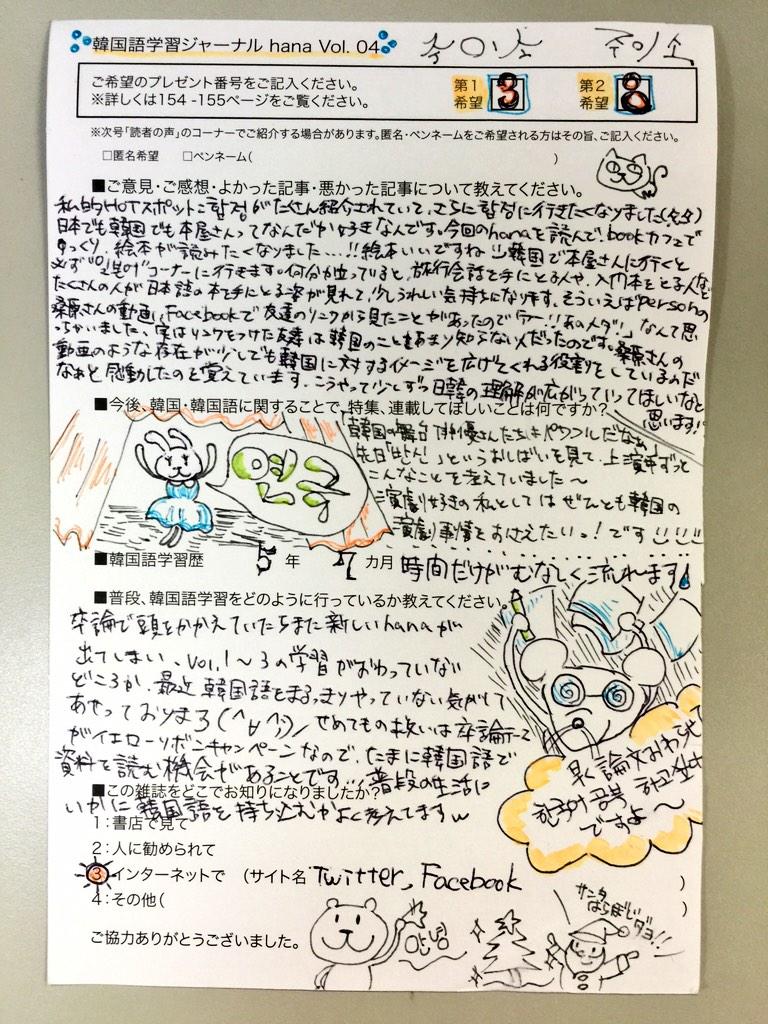 韓国語学習ジャーナル hana Vol. 04
ご希望のプレゼント番号をご記入ください。
※詳しくは154 -155ページをご覧ください。
第1希望 3 第2希望 8
※次号「読者の声」のコーナーでご紹介する場合があります。匿名・ペンネームをご希望される方はその旨、ご記入ください。
□匿名希望 □ペンネーム( )
■ご意見・ご感想・よかった記事・悪かった記事について教えてください。
私的HOTスポットこ합정がたくさん紹介されていて、さらに합정に行きたくなりました
日本でも韓国でも本屋さんってなんだか好きなんです。今回のhanaを読んで、bookカフェで
ゆっくり、絵本が読みたくなりました…!!絵本いいですね 韓国で本屋さんに行くと
必ず コーナーに行きます。何分か立っていると、旅行会話を手にとる人や、入門本をとる人など
たくさんの人が日本語の本を手にとる姿が見れて、少しうれしい気持ちになります。そういえばpersonの
桑原さんの動画、Facebookで友達のリンクから見たことがあったので「アー!!あの人ダ!!」なんて思
っちゃいました、実はリンクをつけた友達は韓国のことをあまり知らない人だったのです。桑原さんの
動画のような存在が少しでも韓国に対するイメージを広げてくれる役割をしているのだ
なぁと感動したのを覚えています。こうやって少しずつ日韓の理解が広がっていってほしいなと
思います!
■今後、韓国・韓国語に関することで、特集、連載してほしいことは何ですか?
韓国の舞台俳優さんたちはパワフルだなぁ
先日「 」というおしばいを見て、上演中ずっと
こんなことを考えていました〜
演劇好きの私としてはぜひとも韓国の
演劇事情をおさえたいっ!です
연극
■韓国語学習歴 5 年 7 カ月 時間だけがむなしく流れます
■普段、韓国語学習をどのように行っているか教えてください。
卒論で頭をかかえていたらまた新しいhanaが
出てしまい、Vol.1〜3の学習がおわっていない
どころか、最近韓国語をまるっきりやっていない気がして
あせっております(^∀^;)ノ せめてもの救いは卒論テーマ
がイエローリボンキャンペーンなので、たまに韓国語で
資料を読む機会があることです…普段の生活に
いかに韓国語を持ち込むかよく考えてますw
早く論文おわらせて
한국어 공부 하고 싶
ですよ〜
■この雑誌をどこでお知りになりましたか?
1:書店で見て
2:人に勧められて
3:インターネットで (サイト名 Twitter, Facebook )
4:その他( )
ご協力ありがとうございました。
안녕
サンタ
はらぼじダヨ!!